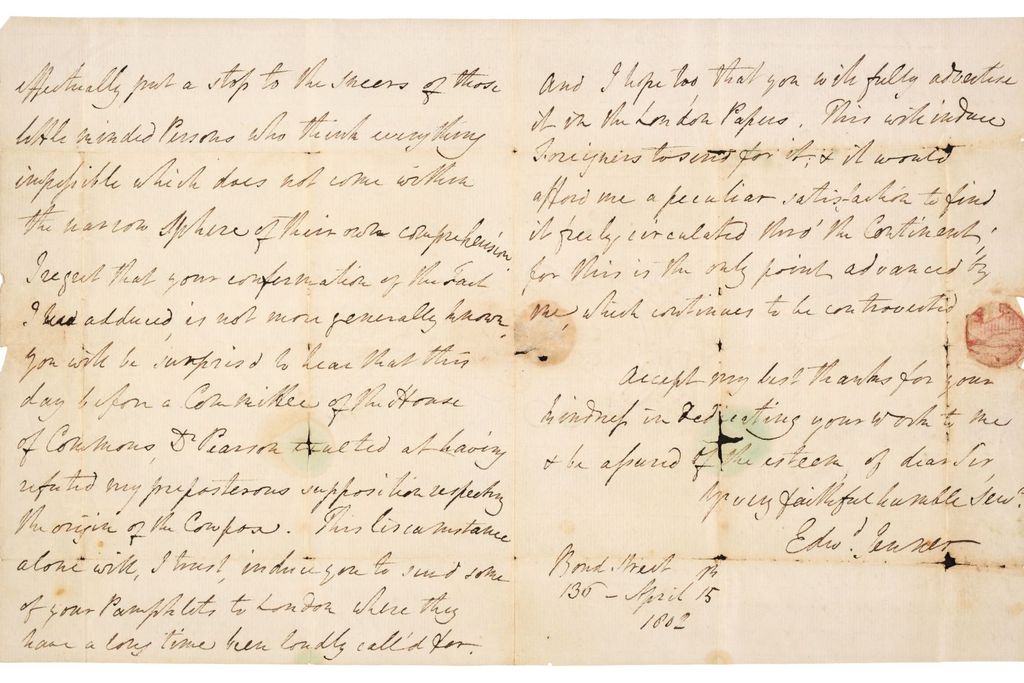 effectually put a stop to the sneers of those
little minded Persons who think everything
impossible which does not come within
the narrow Sphere of their own comprehension.
I regret that your confirmation of the Fact
I had adduced, is not more generally known,
you will be surpris'd to hear that this
day before a Committee of the House
of Commons, Dr Pearson exulted at having
refuted my preposterous supposition respecting
the origin of the Cowpox. This Circumstance
alone will, I trust, induce you to send some
of your Pamphlets to London where they
have a long time been loudly call'd for.
And I hope too that you will fully advertise
it in the London Papers. This will induce
Foreigners to send for it, & it would
afford me a peculiar satisfaction to find
it freely circulated thro' the Continent;
for this is the only point advanced by
me, which continues to be controverted
Accept my best thanks for your
kindness in Dedicating your Work to me
& be assured of the esteem of dear Sir
Yr very faithful humble Servt
Edwd. Jenner
Bond Street
136 - April 15th
1802